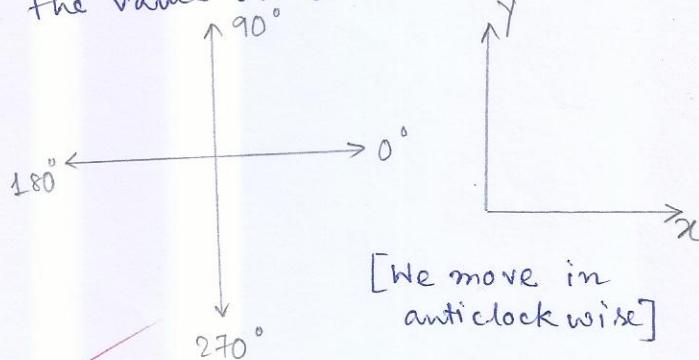 the
90°
Y
180°
0°
x
[We move in
anticlockwise]
270°